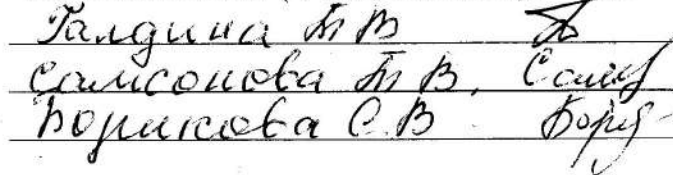 Галдина Т В
Самсонова Т В, Самс
Борикова С. В Бори